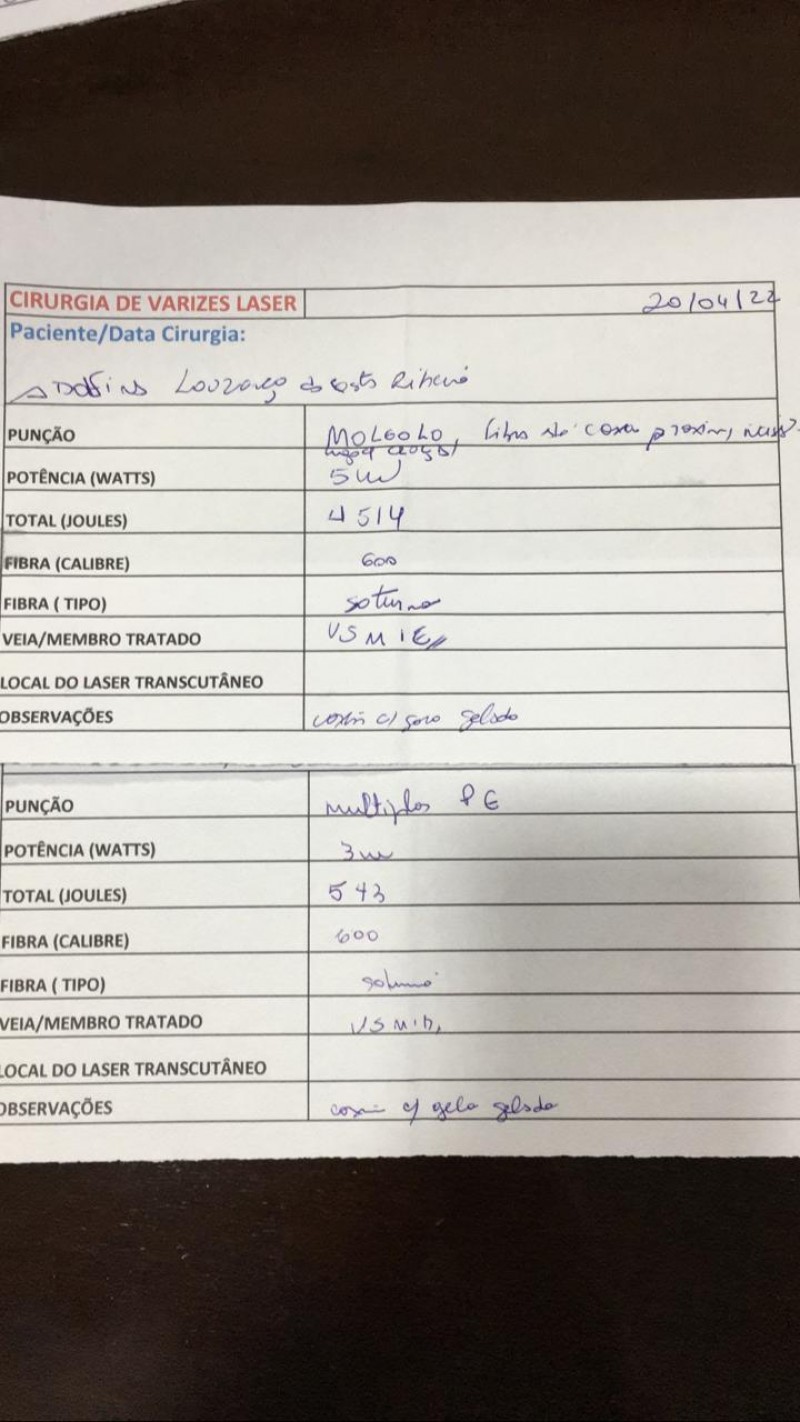 CIRURGIA DE VARIZES LASER 20/04/22
Paciente/Data Cirurgia:
Lourenço da Costa Ribeiro
PUNÇÃO fibra até coxa
POTÊNCIA (WATTS) 5w
TOTAL (JOULES) 4514
FIBRA (CALIBRE) 600
FIBRA ( TIPO)
VEIA/MEMBRO TRATADO VSMIE
LOCAL DO LASER TRANSCUTÂNEO
OBSERVAÇÕES coxin c/ soro gelado
PUNÇÃO multiplas
POTÊNCIA (WATTS) 3w
TOTAL (JOULES) 543
FIBRA (CALIBRE) 600
FIBRA ( TIPO)
VEIA/MEMBRO TRATADO VSMID
LOCAL DO LASER TRANSCUTÂNEO
OBSERVAÇÕES coxin c/ gelo gelado